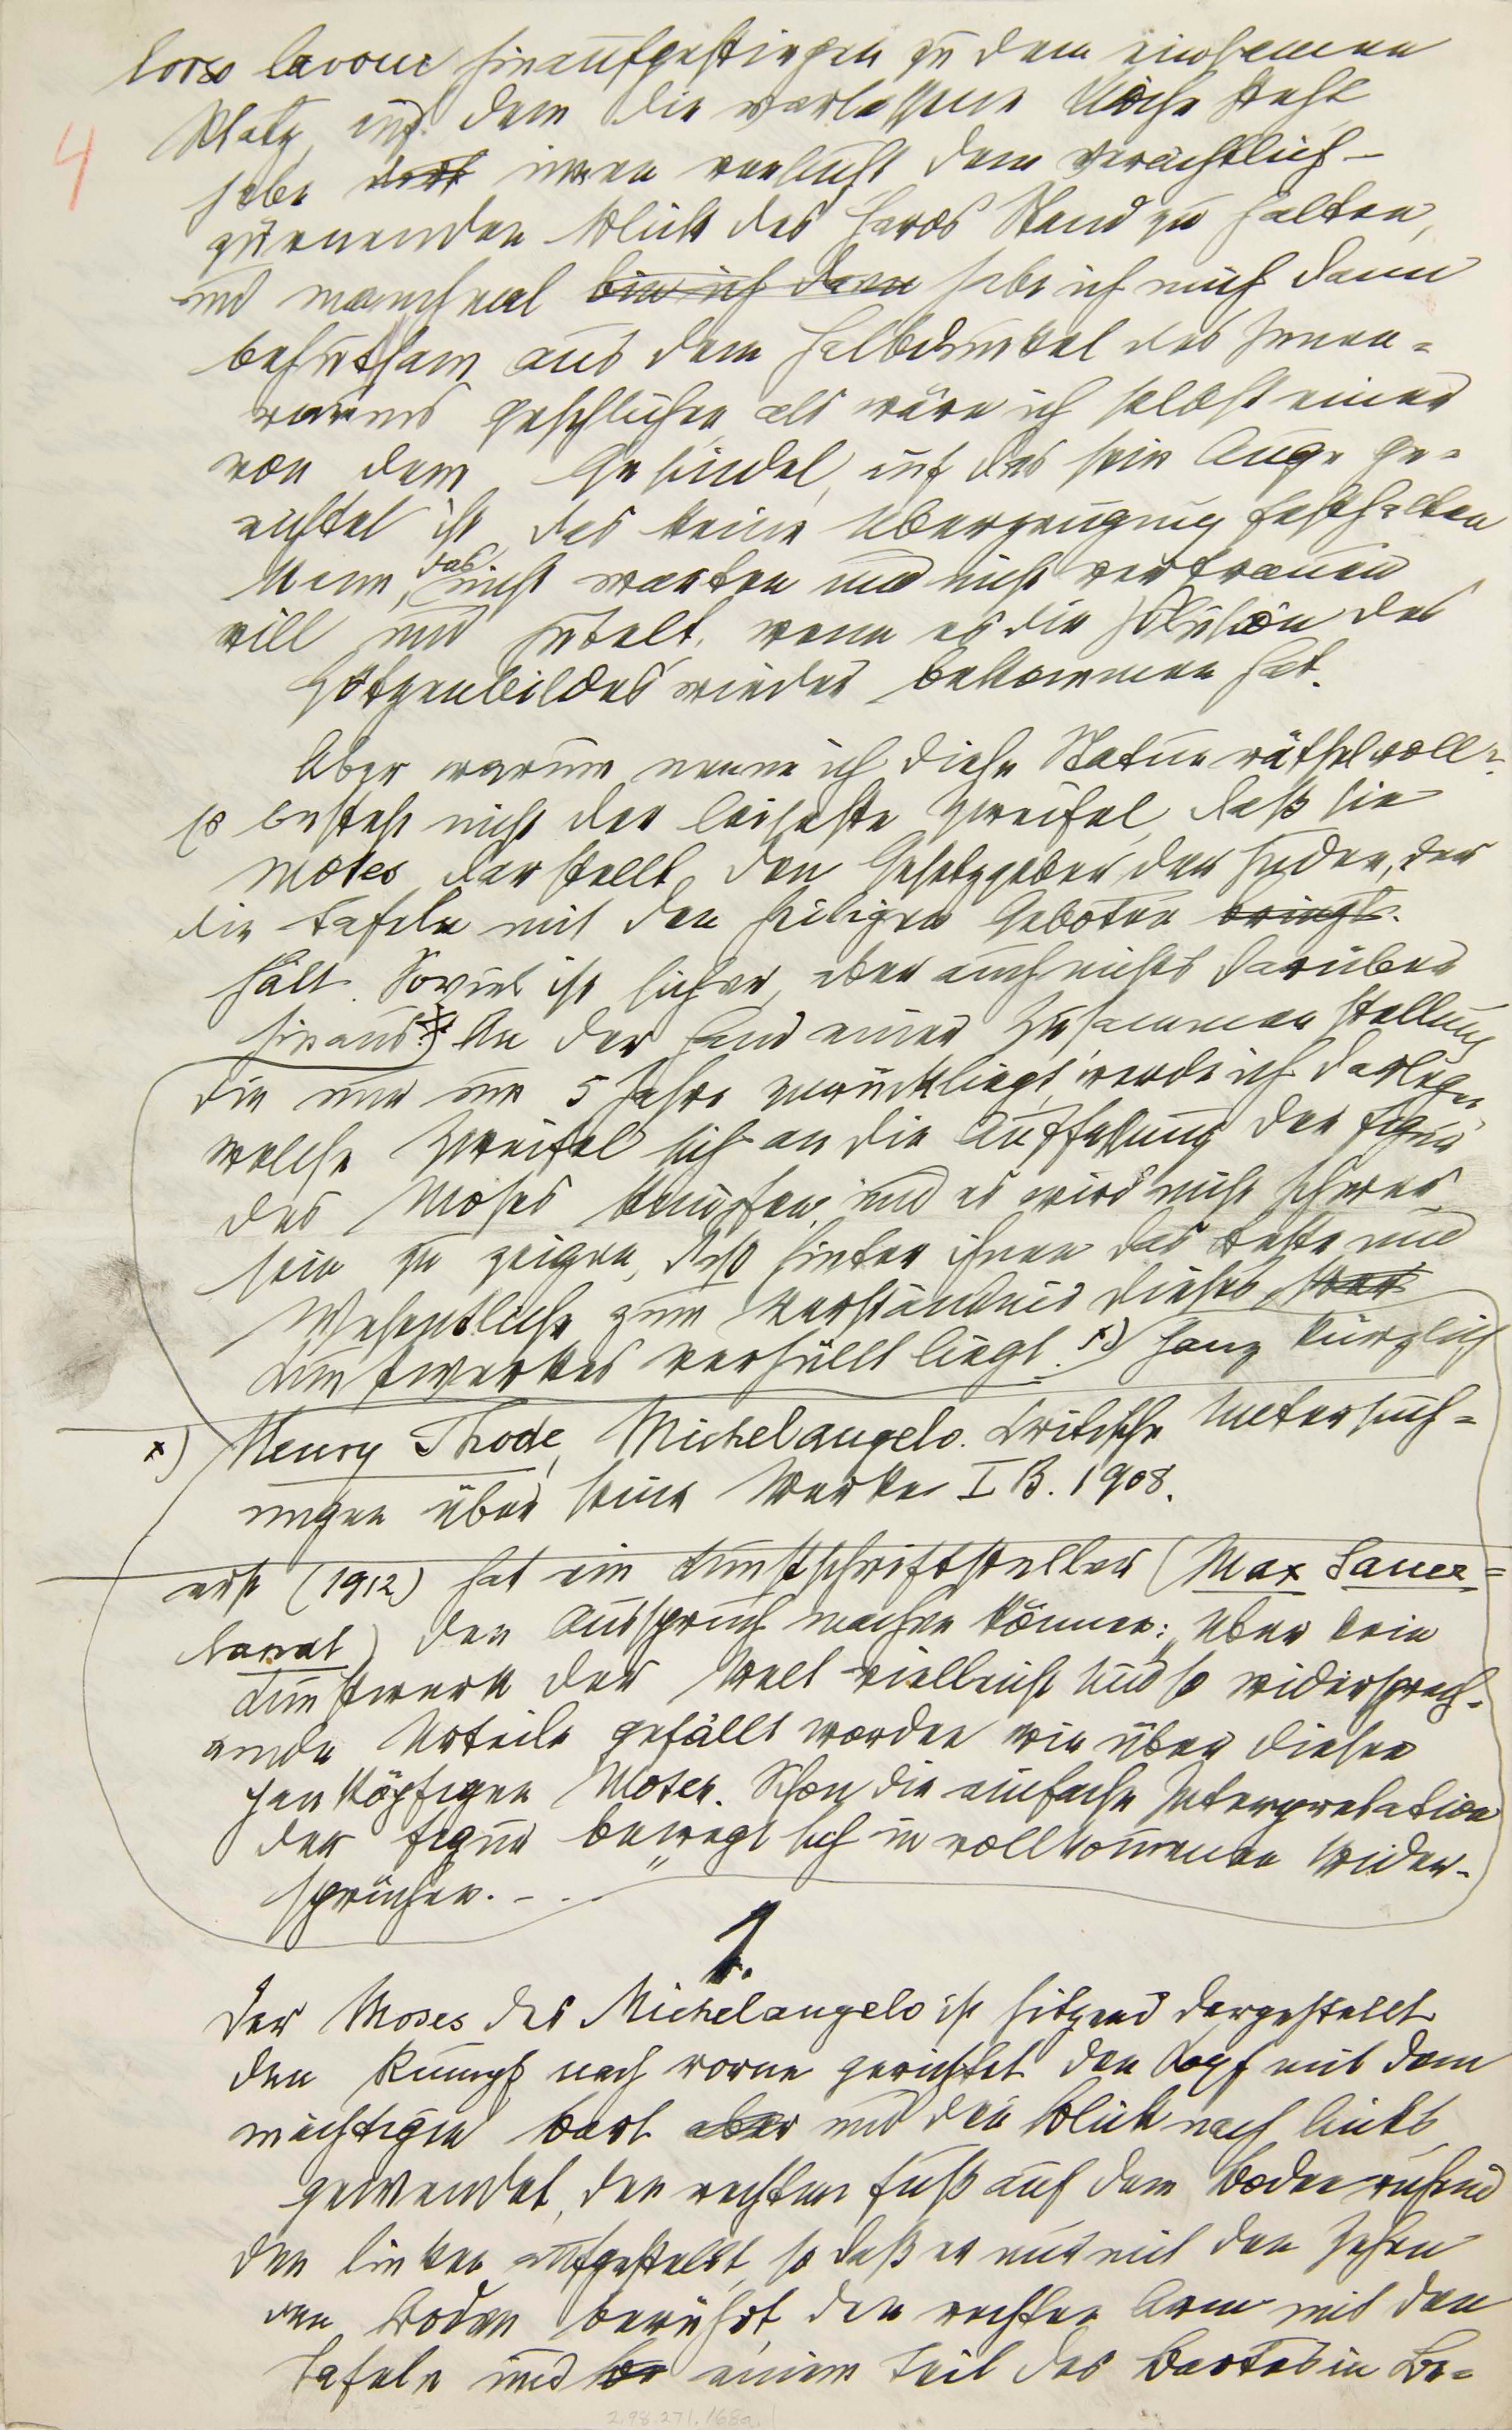 4
Corso Cavour hinaufgestiegen zu dem einsamen
Platz, auf dem die verlassene Kirche steht,
habe dort immer versucht dem verächtlich-
zürnenden Blick des Heros Stand zu halten,
und manchmal bin ich dann habe ich mich dann
behutsam aus dem Halbdunkel des Innen-
raums geschlichen als wäre ich selbst einer
von dem Gesindel, auf das sein Auge ge-
richtet ist, das keine Überzeugung festhalten
kann, das nicht warten und nicht vertrauen
will und jubelt, wenn es die Illusion des
Götzenbildes wieder bekommen hat.
Aber warum nenne ich diese Statue räthselvoll?
Es besteht nicht der leiseste Zweifel, daß sie
Moses darstellt, den Gesetzgeber der Juden, der
die Tafeln mit den heiligen Geboten bringt.
hält. Soviel ist sicher, aber auch nichts darüber
hinaus. An der Hand einer Zusammenstellung
die nun um 5 Jahre zurückliegt, werde ich darlegen
welche Zweifel sich an die Auffassung der Figur
des Moses knüpfen, und es wird nicht schwer
sein zu zeigen, daß hinter ihnen das Beste und
Wesentliche zum Verständnis dieses
Kunstwerkes verhüllt liegt. x) Ganz kürzlich
x) Henry Thode, Michelangelo. Kritische Untersuch-
ungen über seine Werke I B. 1908.
erst (1912) hat ein Kunstschriftsteller (Max Sauer-
landt) den Ausspruch machen können: „Über kein
Kunstwerk der Welt vielleicht sind so widersprech-
ende Urteile gefällt worden wie über diesen
panköpfigen Moses. Schon die einfache Interpretation
der Figur bewegt sich in vollkommenen Wider-
sprüchen. - . . "
1.
Der Moses des Michelangelo ist sitzend dargestellt
den Rumpf nach vorne gerichtet den Kopf mit dem
mächtigen Bart aber und den Blick nach links
gewendet, den rechten Fuß auf dem Boden ruhend
den linken aufgestellt, so daß er nur mit den Zehen
den Boden berührt, den rechten Arm mit den
Tafeln und einem Teil des Bartes in Be-
2.98.271.168a.1